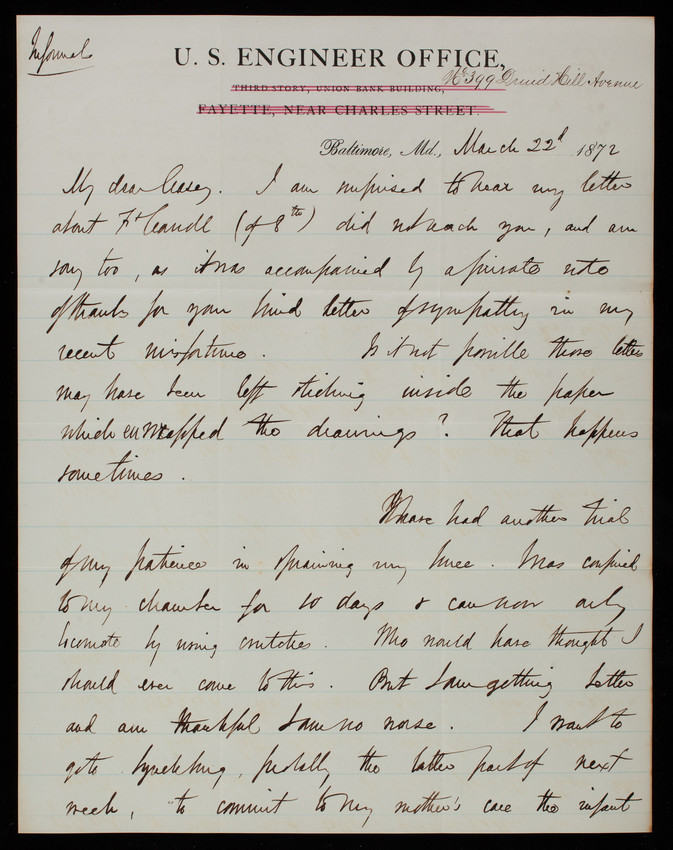 Informal
U. S. ENGINEER OFFICE,
No 399 Druid Hill Avenue
THIRD STORY, UNION BANK BUILDING,
FAYETTE, NEAR CHARLES STREET.
Baltimore, Md., March 22d 1872
My dear Casey. I am surprised to hear my letter
about Ft (of 8th) did not reach you, and am
sorry too, as it was accompanied by a private note
of thanks for your kind letter of sympathy in my
recent misfortune. Is it not possible those letters
may have been left sticking inside the paper
which enwrapped the drawings? That happens
sometimes.
I have had another trial
of my patience in spraining my knee. Was confined
to my chamber for 10 days & can now only
locomote by using crutches. Who would have thought I
should ever come to this. But I am getting better
and am thankful I am no worse. I want to
go to Lynchburg, probably the latter part of next
week, to commit to my mother's care the infant